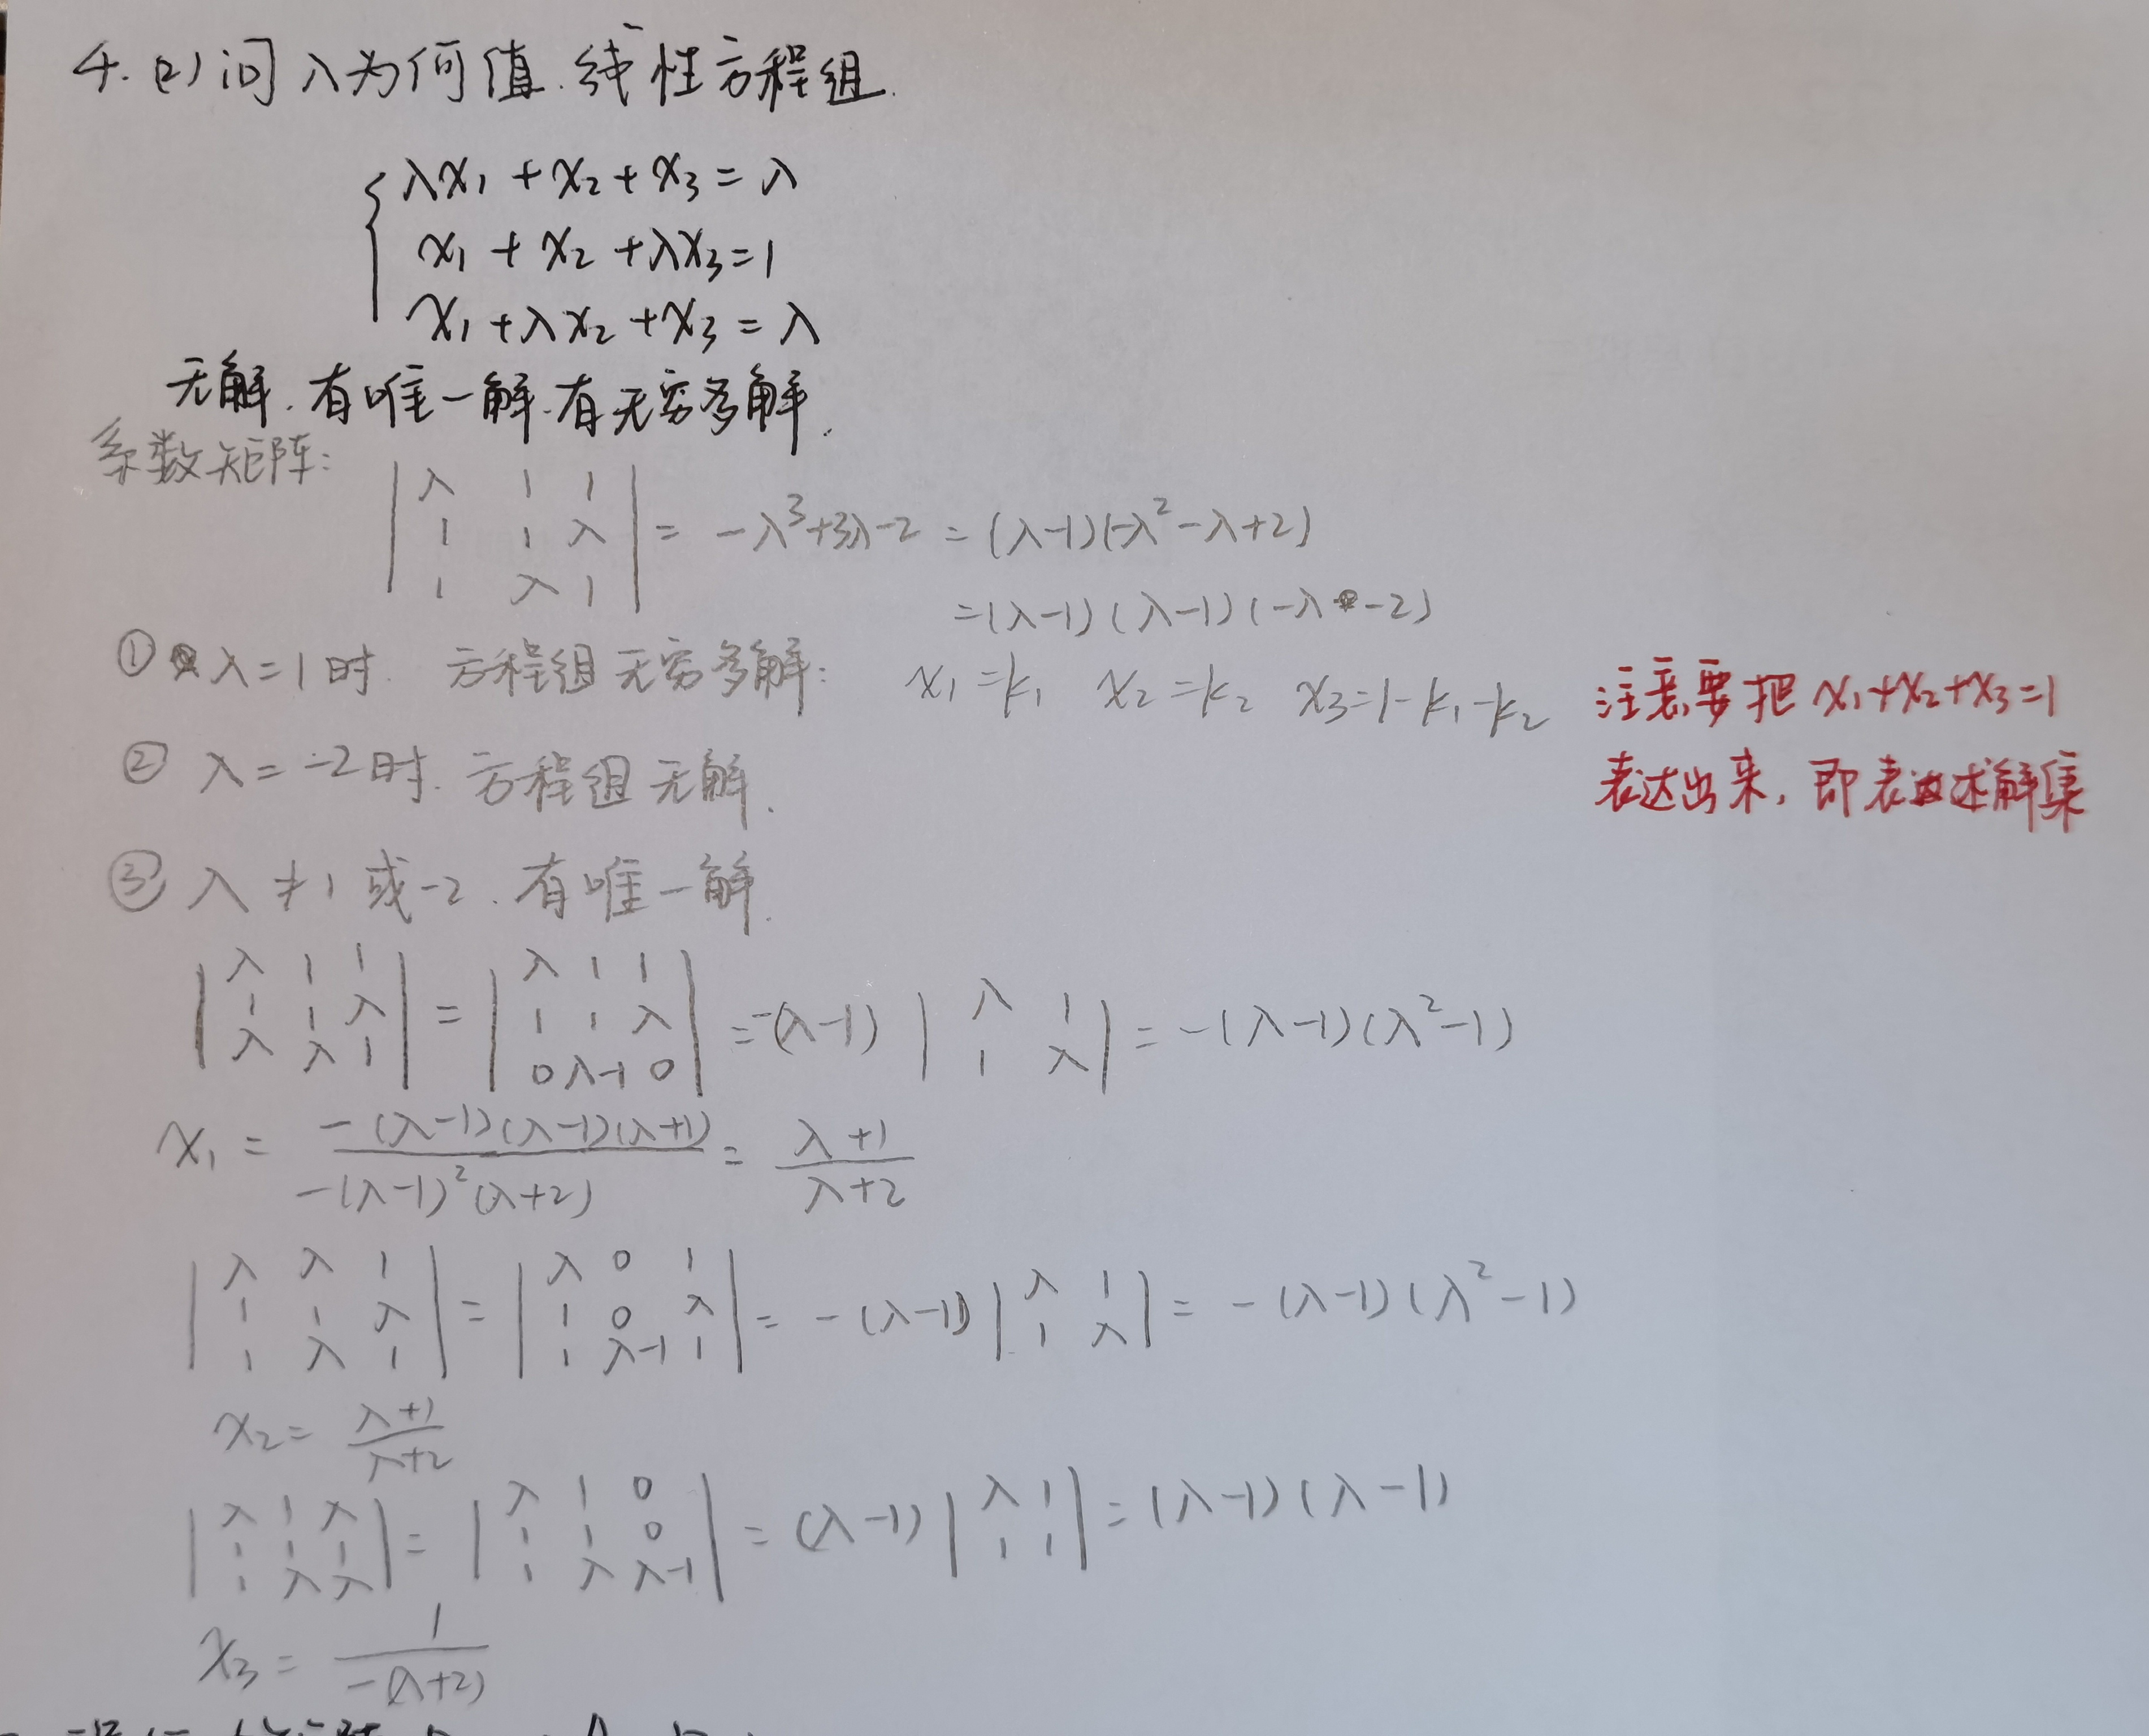 4. (2) 问 λ为何值. 线性方程组.
λx₁ + x₂ + x₃ = λ
x₁ + x₂ + λx₃ = 1
x₁ + λx₂ + x₃ = λ
无解. 有唯一解. 有无穷多解.
系数矩阵:
| λ 1 1 |
| 1 1 λ | = -λ³+3λ-2 = (λ-1)(-λ²-λ+2)
| 1 λ 1 |
=(λ-1)(λ-1)(-λ-2)
① λ=1时. 方程组无穷多解: x₁=k₁ x₂=k₂ x₃=1-k₁-k₂
注意要把 x₁+x₂+x₃=1
表达出来, 即表述解集
② λ=-2时. 方程组无解.
③ λ≠1 或-2. 有唯一解.
| λ 1 1 | | λ 1 1 |
| 1 1 λ | = | 1 1 λ | = -(λ-1) | λ 1 ; 1 λ | = -(λ-1)(λ²-1)
| λ λ 1 | | 0 λ-1 0 |
x₁ = -(λ-1)(λ-1)(λ+1) / -(λ-1)²(λ+2) = λ+1 / λ+2
| λ λ 1 | | λ 0 1 |
| 1 1 λ | = | 1 0 λ | = -(λ-1) | λ 1 ; 1 λ | = -(λ-1)(λ²-1)
| 1 λ 1 | | 1 λ-1 1 |
x₂ = λ+1 / λ+2
| λ 1 λ | | λ 1 0 |
| 1 1 1 | = | 1 1 0 | = (λ-1) | λ 1 ; 1 1 | = (λ-1)(λ-1)
| 1 λ λ | | 1 λ λ-1 |
x₃ = 1 / -(λ+2)